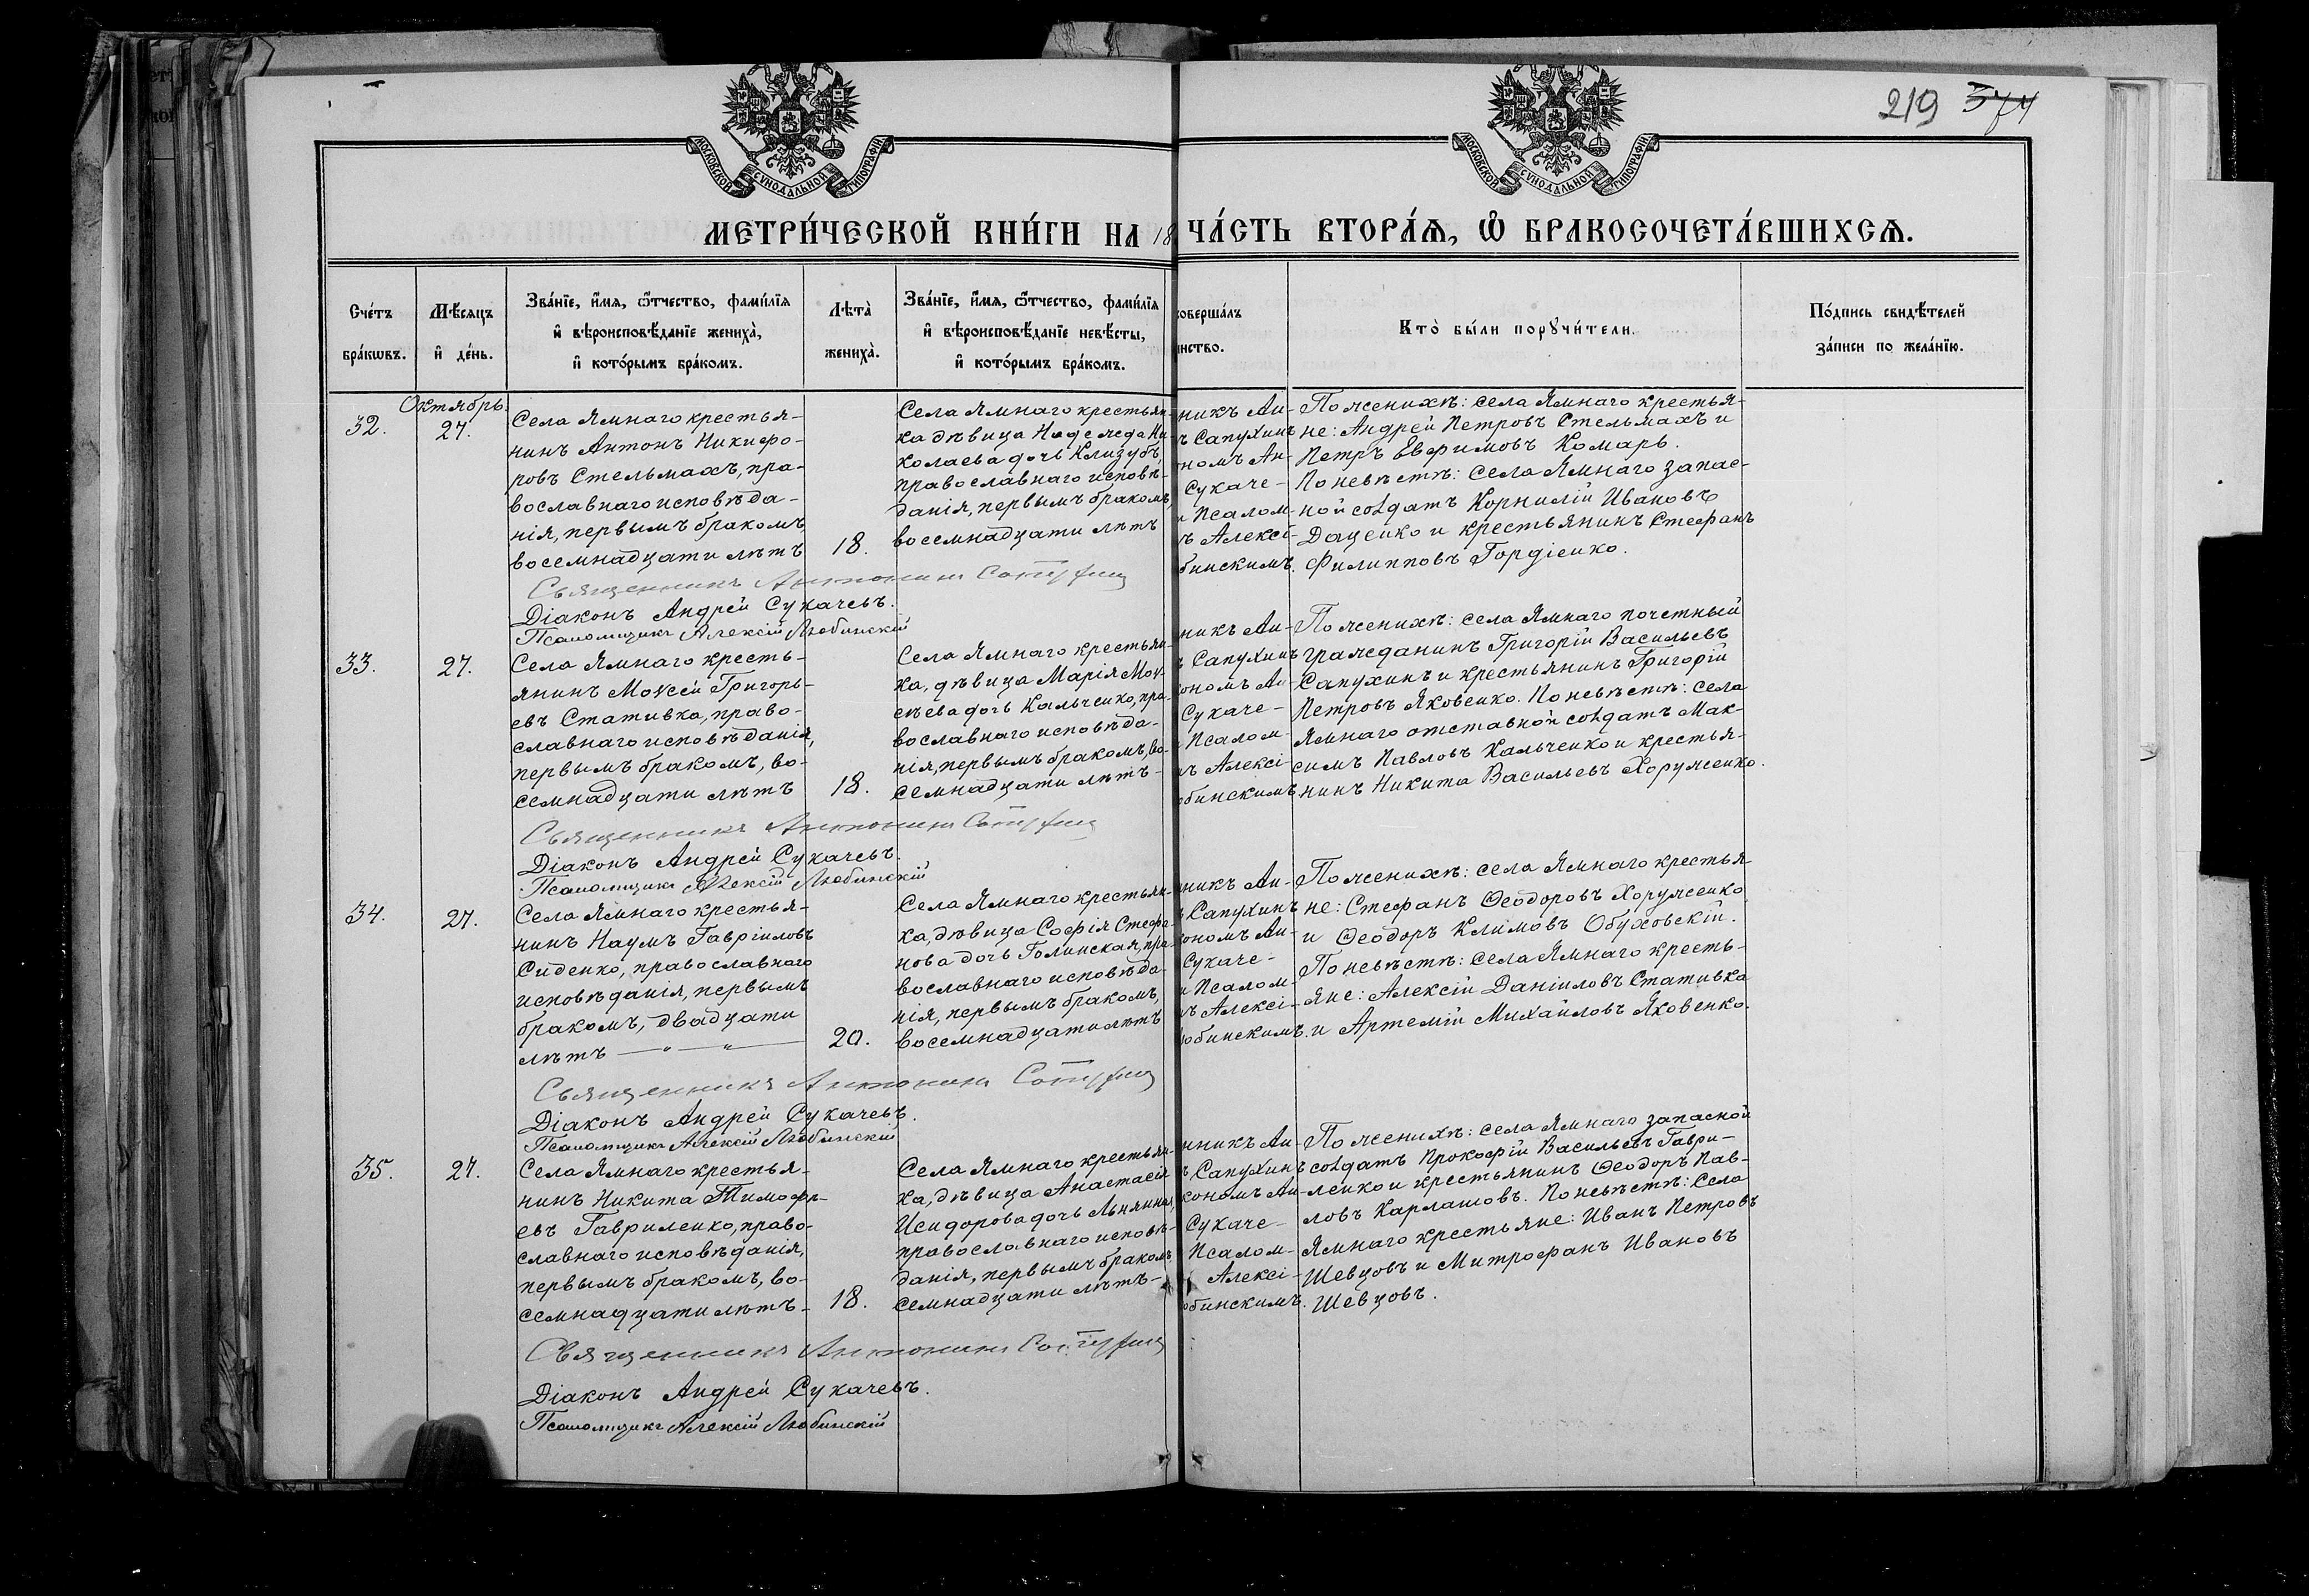 219 374
МОСКОВСКОЙ СѴНОДАЛЬНОЙ ТИПОГРАФІИ
МОСКОВСКОЙ СѴНОДАЛЬНОЙ ТИПОГРАФІИ
МЕТРИ́ЧЕСКОЙ КНИ́ГИ НА 18 ЧА́СТЬ ВТОРА́Ѧ, Ѽ БРАКОСОЧЕТА́ВШИХСѦ.
Сче́тъ
бра́кѡвъ.
Мѣ́сяцъ
и҆ де́нь.
Зва́нїе, и҆́мя, ѻ҆́тчество, фами́лїя
и҆ вѣроисповѣ́данїе жениха̀,
и҆ кото́рымъ бра́комъ.
Лѣта̀
жениха̀.
Зва́нїе, и҆́мя, ѻ҆́тчество, фами́лїя
и҆ вѣроисповѣ́данїе невѣ́сты,
и҆ кото́рымъ бра́комъ.
соверша́лъ
инство.
Кто̀ бы́ли порꙋчи́тели.
По́дпись свидѣ́телей
за́писи по жела́нїю.
32.
Октябрь.
27.
Села Ямнаго крестья-
нинъ Антонъ Никифо-
ровъ Стельмахъ, пра-
вославнаго исповѣда-
нія, первымъ бракомъ
восемнадцати лѣтъ
18.
Села Ямнаго крестьян-
ка дѣвица Надежда Ни-
колаева дочь Клизубъ,
православнаго исповѣ-
данія, первымъ бракомъ,
восемнадцати лѣтъ
никъ Ан-
ъ Сапухинъ
ономъ Ан-
Сукаче-
и Псалом-
ъ Алексі-
бинскимъ.
По женихѣ: села Ямнаго крестья-
не: Андрей Петровъ Стельмахъ и
Петръ Евфимовъ Комарь.
По невѣстѣ: села Ямнаго запас-
ной солдатъ Корнилій Ивановъ
Даценко и крестьянинъ Стефанъ
Филипповъ Гордіенко.
Священникъ Антонинъ Сапухинъ
Діаконъ Андрей Сукачевъ.
Псаломщикъ Алексій Любинскій
33.
27.
Села Ямнаго кресть-
янинъ Моѵсей Григорь-
евъ Стативка, право-
славнаго исповѣданія,
первымъ бракомъ, во-
семнадцати лѣтъ
18.
Села Ямнаго крестьян-
ка, дѣвица Марія Моѵ-
сеева дочь Кальченко, пра-
вославнаго исповѣда-
нія, первымъ бракомъ, во-
семнадцати лѣтъ-
никъ Ан-
ъ Сапухинъ
ономъ Ан-
Сукаче-
и Псалом
ъ Алексі-
бинскимъ.
По женихѣ: села Ямнаго почетный
гражданинъ Григорій Васильевъ
Сапухинъ и крестьянинъ Григорій
Петровъ Яковенко. По невѣстѣ: села
Ямнаго отставной солдатъ Мак-
симъ Павловъ Кальченко и крестья-
нинъ Никита Васильевъ Хоруженко.
Священникъ Антонинъ Сапухинъ
Діаконъ Андрей Сукачевъ.
Псаломщикъ Алексій Любинскій
34.
27.
Села Ямнаго крестья-
нинъ Наумъ Гавріиловъ
Сиденко, православнаго
исповѣданія, первымъ
бракомъ, двадцати
лѣтъ — " — " —
20.
Села Ямнаго крестьян-
ка, дѣвица Софія Стефа-
нова дочь Голинская, пра-
вославнаго исповѣда-
нія, первымъ бракомъ,
восемнадцати лѣтъ
никъ Ан-
ъ Сапухинъ
ономъ Ан-
Сукаче-
и Псалом-
ъ Алексі-
юбинскимъ.
По женихѣ: села Ямнаго крестья-
не: Стефанъ Ѳеодоровъ Хоруженко
и Ѳеодоръ Климовъ Обуховскій.
По невѣстѣ: села Ямнаго кресть-
яне: Алексій Даніиловъ Стативка
и Артемій Михайловъ Яковенко.
Священникъ Антонинъ Сапухинъ
Діаконъ Андрей Сукачевъ.
Псаломщикъ Алексій Любинскій
35.
27.
Села Ямнаго крестья-
нинъ Никита Тимофе-
евъ Гавриленко, право-
славнаго исповѣданія,
первымъ бракомъ, во-
семнадцати лѣтъ-
18.
Села Ямнаго крестьян-
ка, дѣвица Анастасія
Исидорова дочь Льнянна,
православнаго исповѣ-
данія, первымъ бракомъ
семнадцати лѣтъ-
нникъ Ан-
ъ Сапухинъ
кономъ Ан-
Сукаче-
Псалом-
Алексі-
обинскимъ.
По женихѣ: села Ямнаго запасной
солдатъ Прокофій Васильевъ Гаври-
ленко и крестьянинъ Ѳеодоръ Пав-
ловъ Карлашовъ. По невѣстѣ: села
Ямнаго крестьяне: Иванъ Петровъ
Шевцовъ и Митрофанъ Ивановъ
Шевцовъ.
Священникъ Антонинъ Сапухинъ
Діаконъ Андрей Сукачевъ.
Псаломщикъ Алексій Любинскій